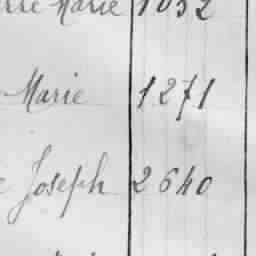 Marie 1032
Marie 1271
Joseph 2640